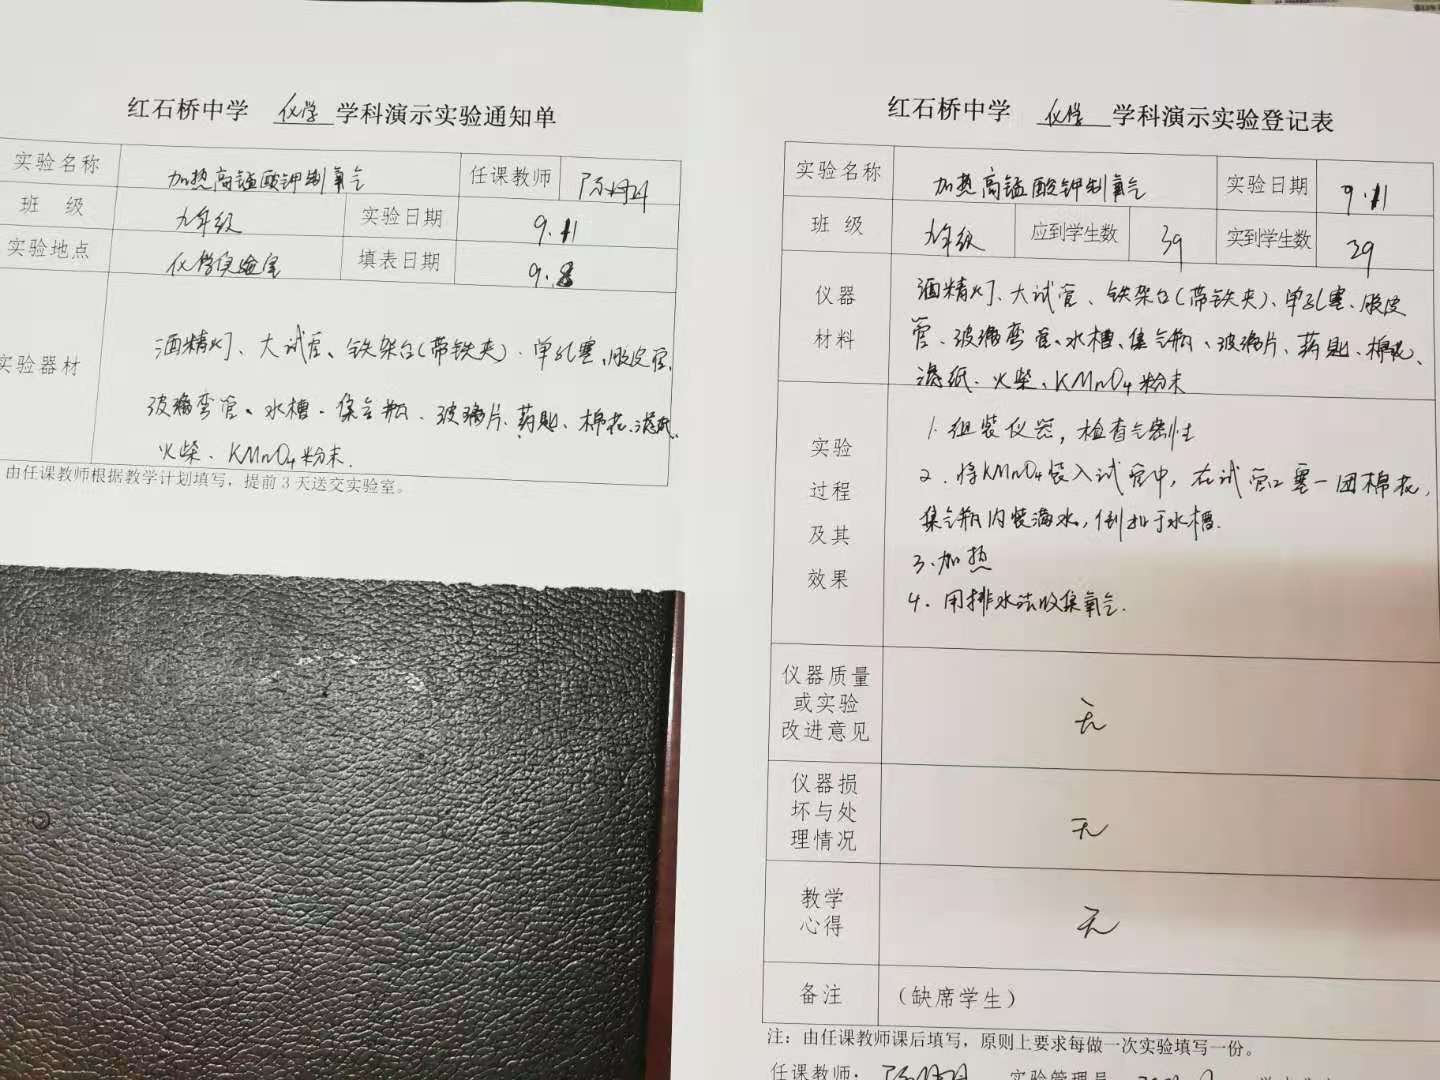 红石桥中学 化学 学科演示实验通知单
实验名称 加热高锰酸钾制氧气 任课教师
班 级 九年级 实验日期 9.11
实验地点 化学实验室 填表日期 9.8
实验器材
酒精灯、大试管、铁架台(带铁夹)、单孔塞、胶皮管、
玻璃弯管、水槽、集气瓶、玻璃片、药匙、棉花、滤纸、
火柴、KMnO4粉末.
由任课教师根据教学计划填写，提前3天送交实验室。
红石桥中学 化学 学科演示实验登记表
实验名称 加热高锰酸钾制氧气 实验日期 9.11
班 级 九年级 应到学生数 39 实到学生数 39
仪器
材料
酒精灯、大试管、铁架台(带铁夹)、单孔塞、胶皮
管、玻璃弯管、水槽、集气瓶、玻璃片、药匙、棉花、
滤纸、火柴、KMnO4粉末
实验
过程
及其
效果
1.组装仪器，检查气密性
2.将KMnO4装入试管中，在试管口塞一团棉花，
集气瓶内装满水，倒扣于水槽.
3.加热
4.用排水法收集氧气.
仪器质量
或实验
改进意见
无
仪器损
坏与处
理情况
无
教学
心得
无
备注 （缺席学生）
注：由任课教师课后填写，原则上要求每做一次实验填写一份。
任课教师： 实验管理员